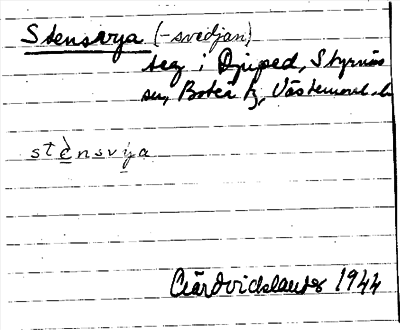 Stensvya (-svedjan)
teg i Djuped, Styrnäs
sn, Boteå tg, Västernorrl. l.
stènsvya
Gärdvidslander 1944